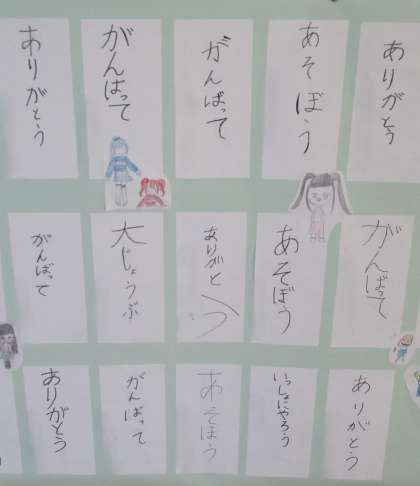 ありがとう
がんばって
がんばって
あそぼう
ありがとう
がんばって
大じょうぶ
ありがとう
あそぼう
がんばって
ありがとう
がんばって
あそぼう
いっしょにやろう
ありがとう